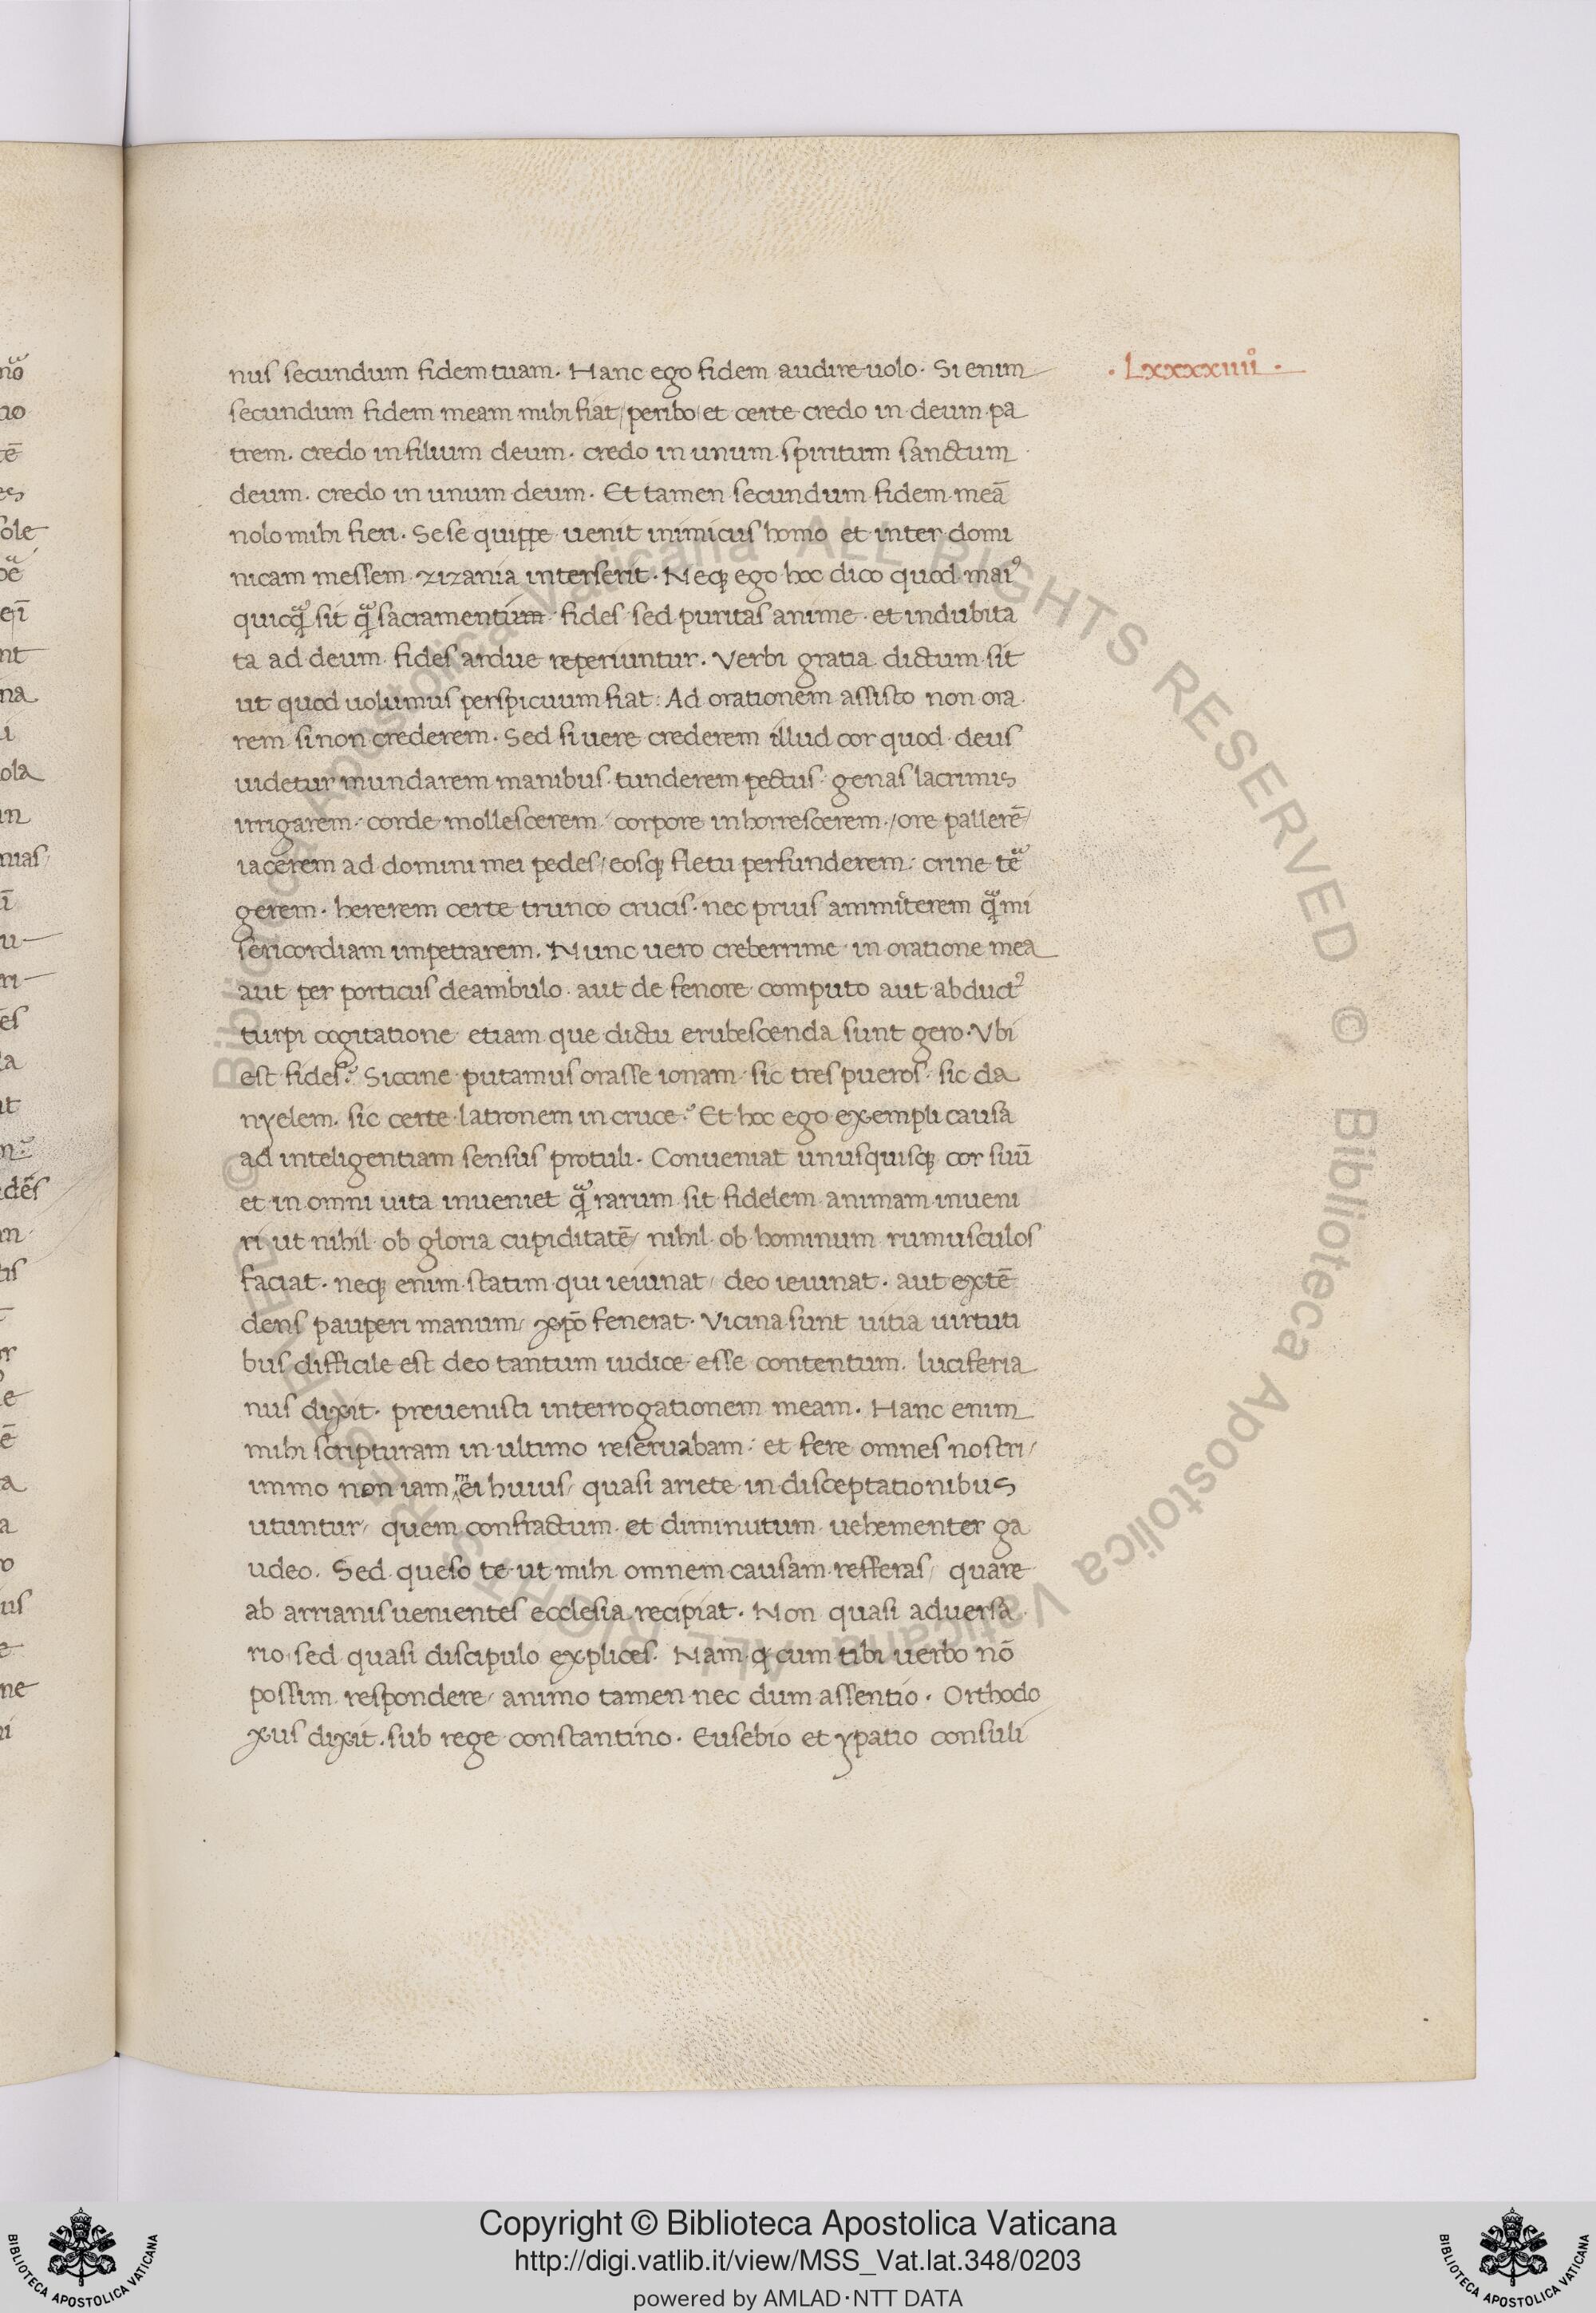 nus secundum fidem tuam. Hanc ego fidem audire uolo. Si enim
· Lxxxxiiii ·
secundum fidem meam mihi fiat / peribo / et certe credo in deum pa
trem. credo in filium deum. credo in unum spiritum sanctum
deum. credo in unum deum. Et tamen secundum fidem meā
nolo mihi fieri. Se se quippe uenit inimicus homo et inter domi
nicam messem zizania interserit. Neqꝫ ego hoc dico quod maiꝰ
quicqᷓ sit qᷓ sacramentum fides sed puritas anime et indubita
ta ad deum fides ardue reperiuntur. Verbi gratia dictum sit
ut quod uolumus perspicuum fiat: Ad orationem assisto non ora
rem si non crederem. Sed si uere crederem illud cor quod deus
uidetur mundarem manibus tunderem pectus genas lacrimis
irrigarem corde mollescerem corpore inhorrescerem / ore pallerē /
iacerem ad domini mei pedes / eosqꝫ fletu perfunderem: crine tē
gerem. hererem certe trunco crucis. nec prius ammitterem qᷓ mi
sericordiam impetrarem. Nunc uero creberrime in oratione mea
aut per porticus deambulo aut de fenore computo aut abductꝰ
turpi cogitatione etiam que dictu erubescenda sunt gero. Vbi
est fides? Siccine putamus orasse ionam sic tres pueros sic da
nyelem. sic certe latronem in cruce? Et hoc ego exempli causa
ad inteligentiam sensus protuli. Conueniat unusquisqꝫ cor suū
et in omni uita inueniet qᷓ rarum sit fidelem animam inueni
ri ut nihil ob gloria cupiditatē / nihil ob hominum rumusculos
faciat. neqꝫ enim statim qui ieiunat / deo ieiunat. aut extē
dens pauperi manum / xp̄o fenerat. Vicina sunt uitia uirtuti
bus difficile est deo tantum iudice esse contentum. luciferia
nus dixit. preuenisti interrogationem meam. Hanc enim
mihi scripturam in ultimo reseruabam: et fere omnes nostri /
immo non iam mei huius / quasi ariete in disceptationibus
utuntur / quem confractum et diminutum uehementer ga
udeo. Sed queso te ut mihi omnem causam refferas / quare
ab arrianis uenientes ecclesia recipiat. Non quasi aduersa
rio sed quasi discipulo explices. Nam qꝫ cum tibi uerbo nō
possim respondere / animo tamen nec dum assentio. Orthodo
xus dixit. sub rege constantino. Eusebio et ypatio consuli
© Biblioteca Apostolica Vaticana ALL RIGHTS RESERVED © Biblioteca Apostolica Vaticana ALL RIGHTS RESERVED
Copyright © Biblioteca Apostolica Vaticana
http://digi.vatlib.it/view/MSS_Vat.lat.348/0203
powered by AMLAD·NTT DATA
BIBLIOTECA APOSTOLICA VATICANA
BIBLIOTECA APOSTOLICA VATICANA